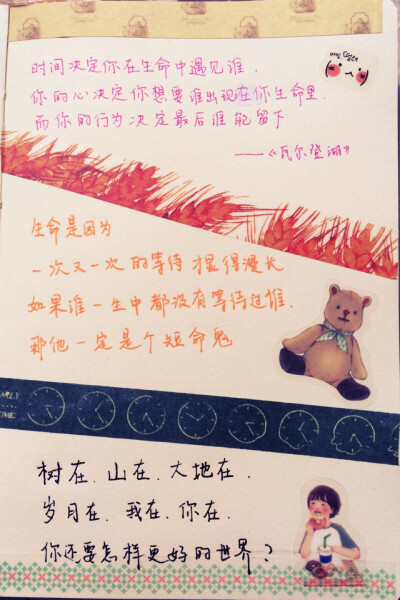 时间决定你在生命中遇见谁.
你的心决定你想要谁出现在你生命里.
而你的行为决定最后谁能留下
——《瓦尔登湖》
生命是因为
一次又一次的等待 才显得漫长
如果谁一生中都没有等待过谁.
那他一定是个短命鬼
EARLY
TIME
树在.山在.大地在.
岁月在.我在.你在.
你还要怎样更好的世界?